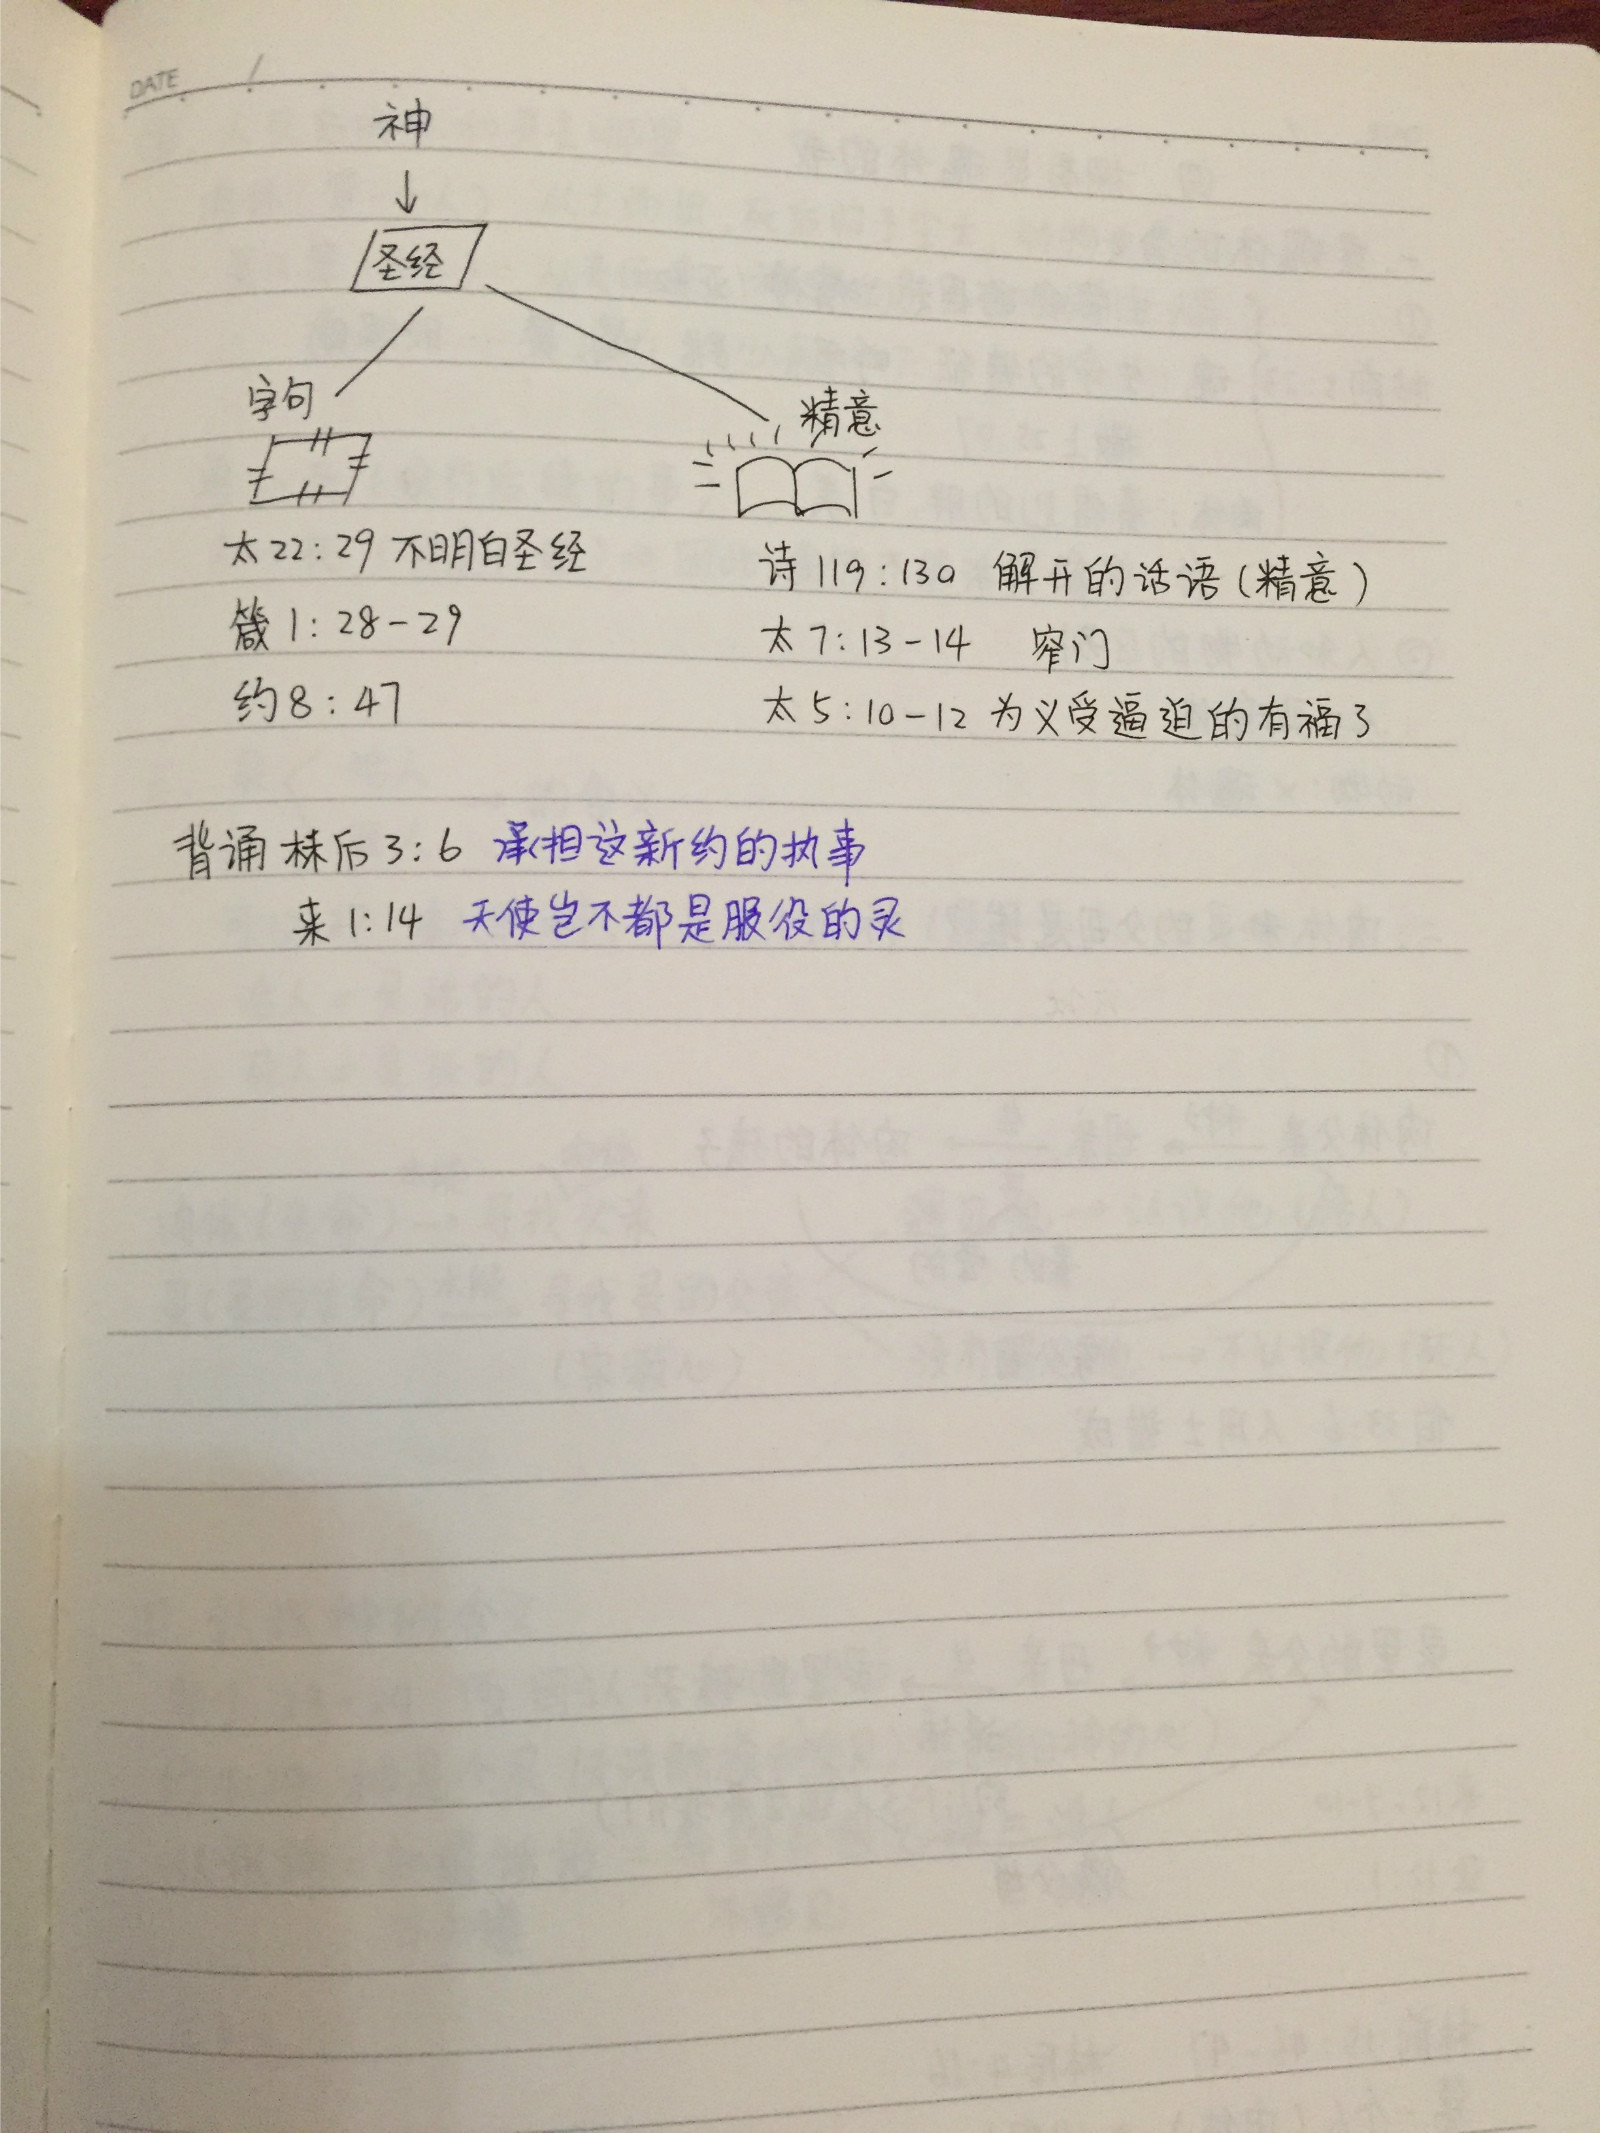 DATE /
神
圣经
字句
精意
太22:29 不明白圣经
箴1:28-29
约8:47
诗119:130 解开的话语(精意)
太7:13-14 窄门
太5:10-12 为义受逼迫的有福了
背诵 林后3:6 承担这新约的执事
来1:14 天使岂不都是服役的灵